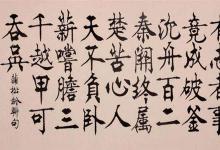 有志者事
竟成破釜
沉舟百二
秦關終屬
楚苦心人
天不負臥
薪嘗膽三
千越甲可
吞吳
蒲松齡聯句